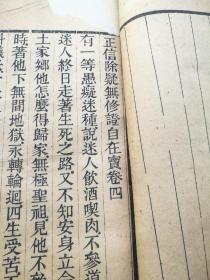 正信除疑無修證自在寶卷四
有一等愚癡迷種說迷人飲酒喫肉不參道
迷人終日走著生死之路又不知安身立命
土家鄉他怎麼得歸家無極聖祖見他不
時著他下無間地獄永轉輪迴四生受苦